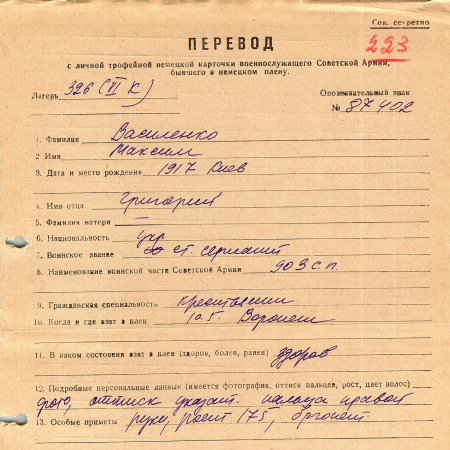 Сов. секретно
223
ПЕРЕВОД
с личной трофейной немецкой карточки военнослужащего Советской Армии,
бывшего в немецком плену.
Лагерь 326 (VI К)
Опознавательный знак
№ 87402
1. Фамилия Василенко
2 Имя Максим
3. Дата и место рождения 1917 Киев
4. Имя отца Григорий
5. Фамилия матери —
6. Национальность укр
7. Воинское звание ст. сержант
8. Наименование воинской части Советской Армии 903 с.п.
9. Гражданская специальность крестьянин
10. Когда и где взят в плен 10.5. Воронеж
11. В каком состоянии взят в плен (здоров, болен, ранен) здоров
12. Подробные персональные данные (имеется фотография, оттиск пальцев, рост, цвет волос)
фото, оттиск указат. пальца правой
13. Особые приметы руки, рост 175, брюнет.